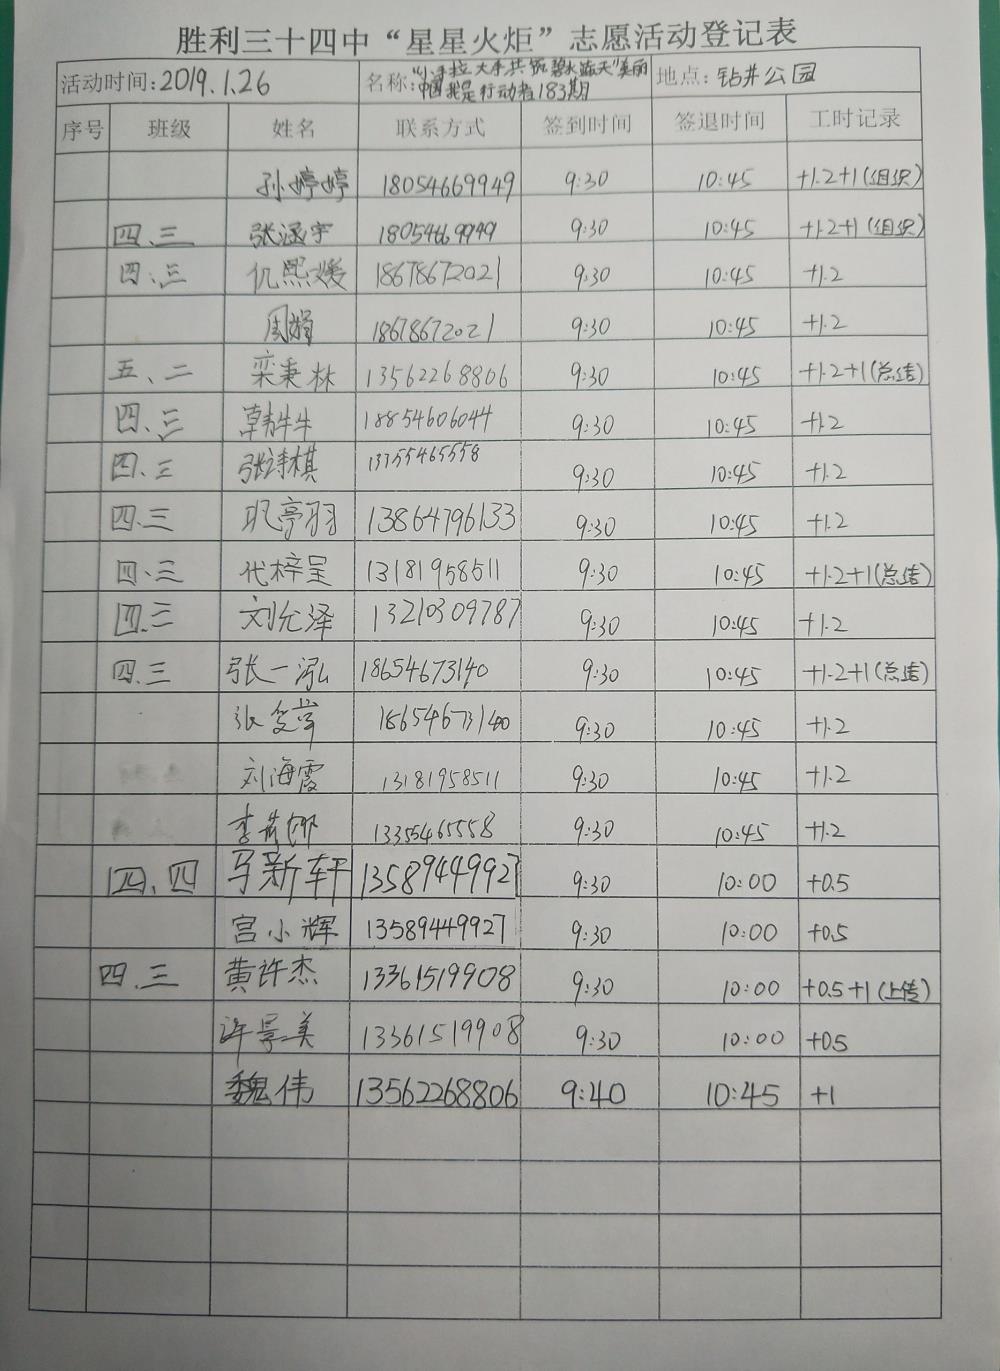 胜利三十四中“星星火炬”志愿活动登记表
活动时间:2019.1.26 名称:“小手拉大手共筑碧水蓝天”美丽中国我是行动者183期 地点:钻井公园
序号 班级 姓名 联系方式 签到时间 签退时间 工时记录
孙婷婷 18054669949 9:30 10:45 +1.2+1(组织)
四.三 张涵宇 18054669949 9:30 10:45 +1.2+1(组织)
四.三 仉熙媛 18678672021 9:30 10:45 +1.2
周娟 18678672021 9:30 10:45 +1.2
五、二 栾秉林 13562268806 9:30 10:45 +1.2+1(总结)
四.三 韩牛牛 18854606044 9:30 10:45 +1.2
四.三 张诗棋 13355465558 9:30 10:45 +1.2
四.三 亭羽 13864796133 9:30 10:45 +1.2
四.三 代梓呈 13181958511 9:30 10:45 +1.2+1(总结)
四.三 刘允泽 13210309787 9:30 10:45 +1.2
四.三 张一泓 18654673140 9:30 10:45 +1.2+1(总结)
张 18654673140 9:30 10:45 +1.2
刘海霞 13181958511 9:30 10:45 +1.2
李 娜 13355465558 9:30 10:45 +1.2
四.四 马新轩 13589449927 9:30 10:00 +0.5
宫小辉 13589449927 9:30 10:00 +0.5
四.三 黄许杰 13361519908 9:30 10:00 +0.5+1(上传)
许景美 13361519908 9:30 10:00 +0.5
魏伟 13562268806 9:40 10:45 +1